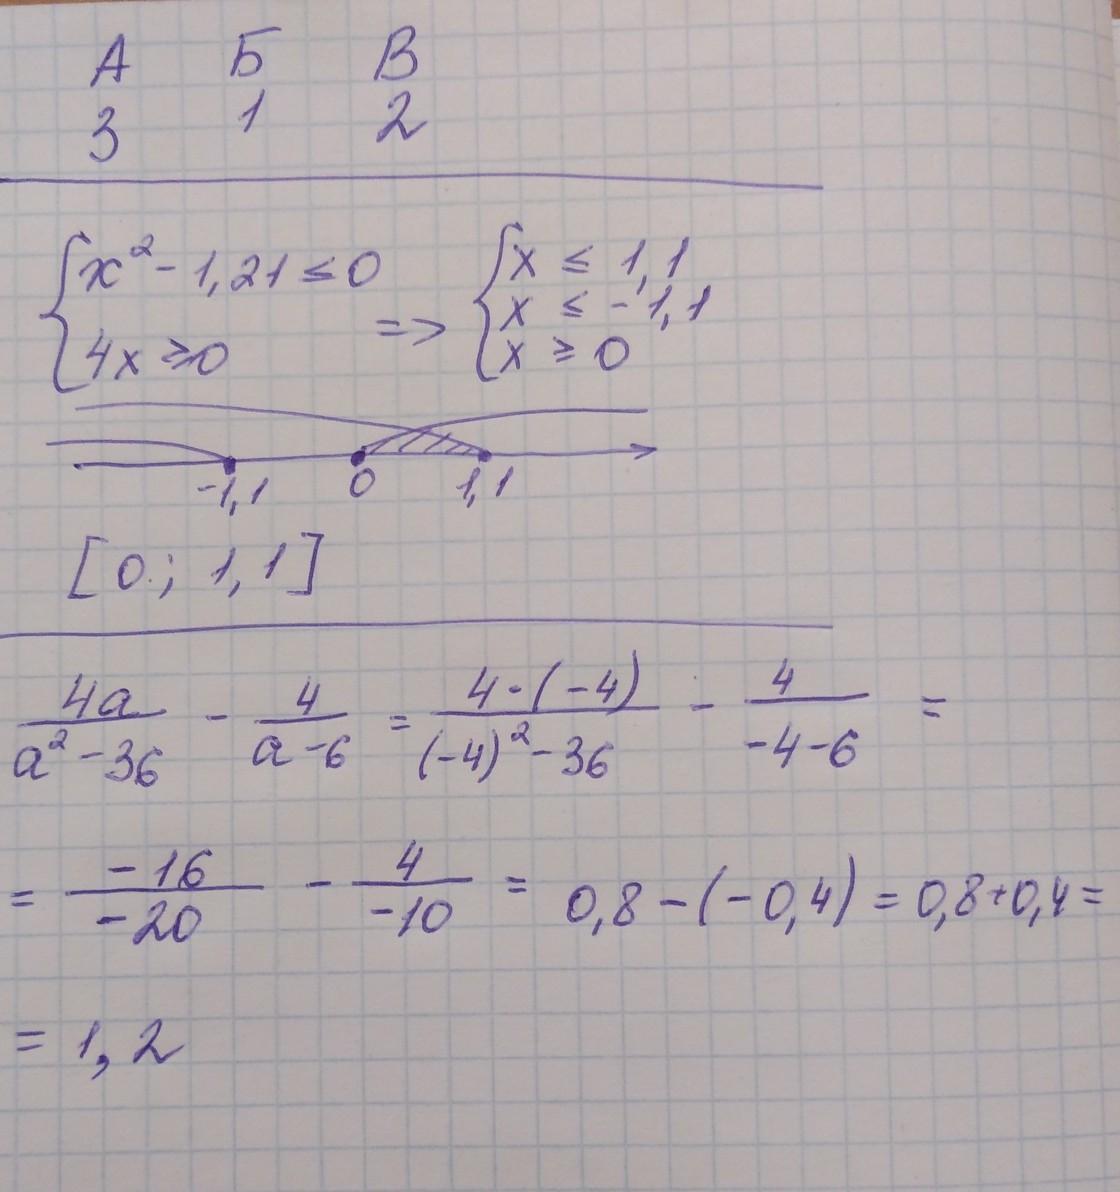 А Б В
3 1 2
{ x² - 1,21 ≤ 0
4x ≥ 0
=> { x ≤ 1,1
x ≤ -1,1
x ≥ 0
-1,1 0 1,1
[0; 1,1]
4a/(a² - 36) - 4/(a - 6) = 4·(-4)/((-4)² - 36) - 4/(-4-6) =
= -16/-20 - 4/-10 = 0,8 - (-0,4) = 0,8+0,4 =
= 1,2